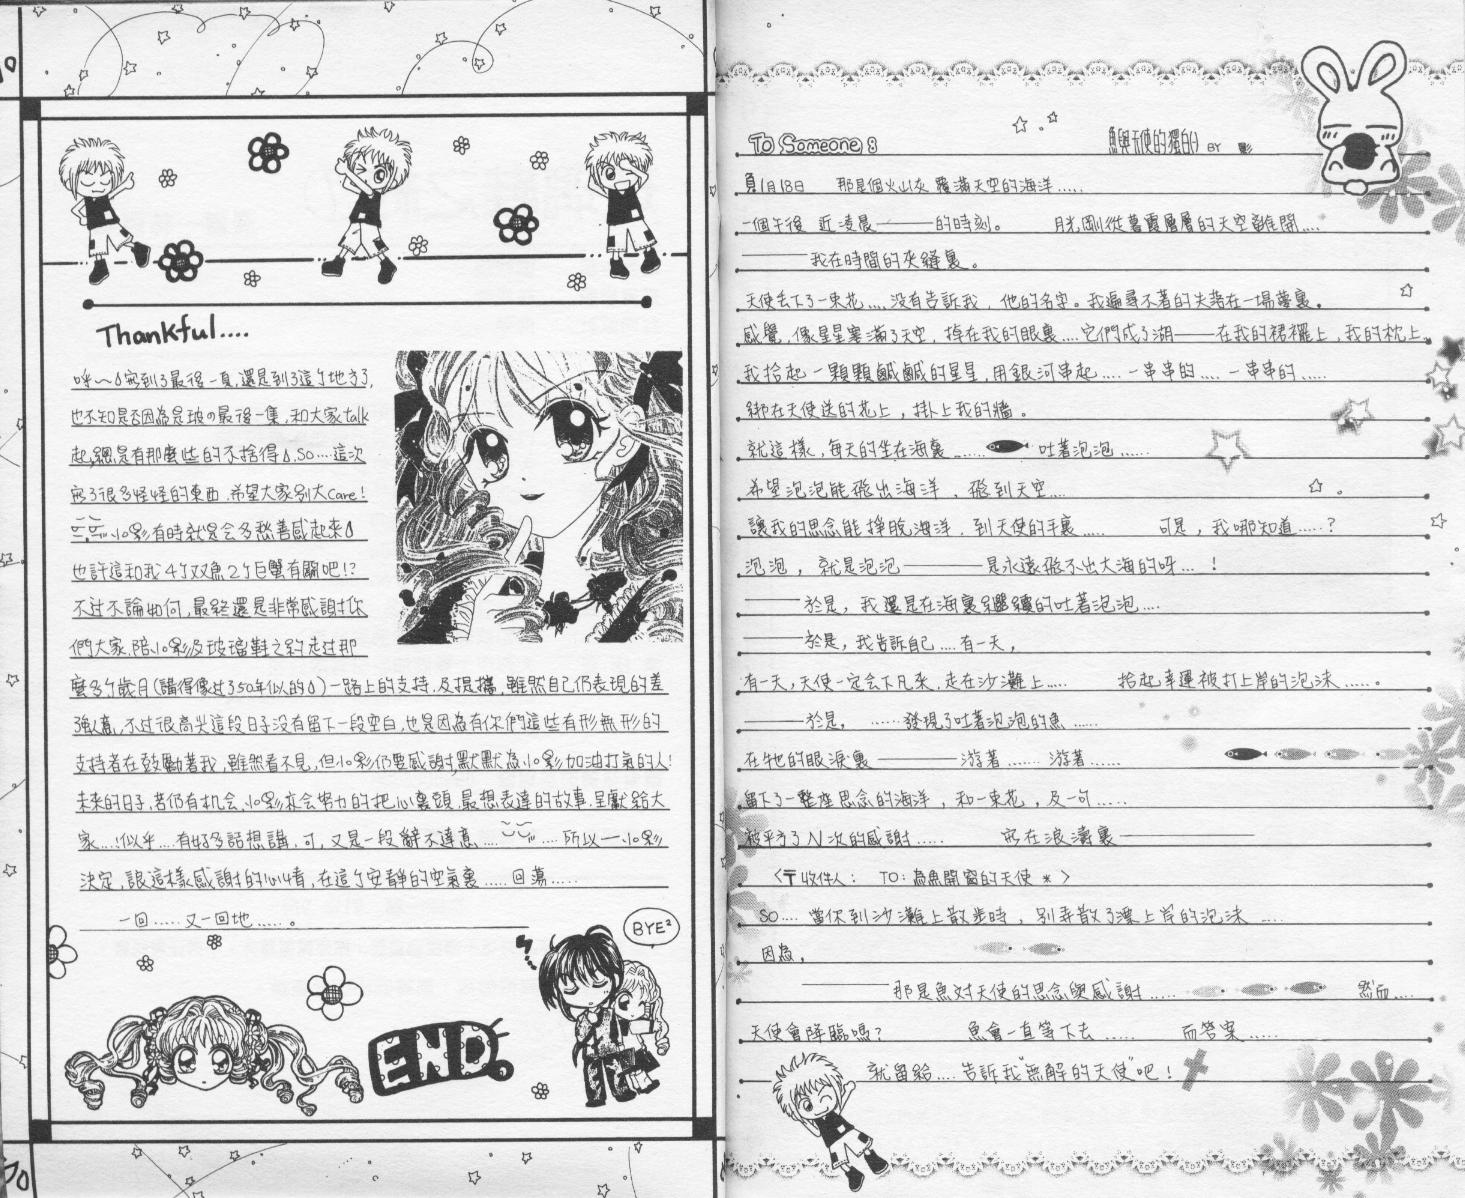 Thankful....
呼～寫到了最後一頁,還是到了這ㄅ地方了,
也不知是否因為是玻の最後一集,和大家talk
起,總是有那麼些的不捨得,SO....這次
寫了很多怪怪的東西,希望大家別太care!
小彩有時就是會多愁善感起來
也許這和我4ㄅ双魚2ㄅ巨蟹有關吧!?
不过不論如何,最終還是非常感謝你
們大家,陪小彩及玻璃鞋之約走过那
麼多ㄅ歲月(講得像过了50年似的)一路上的支持,及提攜,雖然自己仍表現的差
強人意,不过很高兴這段日子没有留下一段空白,也是因為有你們這些有形無形的
支持者在鼓勵著我,雖然看不見,但小彩仍要感謝,默默為小彩加油打氣的人!
未來的日子,若仍有机会,小彩在会努力的把心裏頭,最想表達的故事,呈獻給大
家....!似乎....有好多話想講,可,又是一段辭不達意.... ....所以一小彩
決定,讓這樣感謝的心情,在這ㄅ安靜的空氣裏.....回蕩.....
一回.....又一回地.....。
BYE²
END.
To Someone 8
魚與天使的獨白() BY 彩
1月18日 那是個火山灰覆滿天空的海洋.....
一個午後 近凌晨———的時刻。 月光,剛從暮靄層層的天空離開....
———我在時間的夾縫裏。
天使丟下了一束花....没有告訴我,他的名字。我遍尋不著的失落在一場夢裏。
感覺,像星星塞滿了天空,掉在我的眼裏....它們成了湖——在我的裙襬上,我的枕上。
我拾起一顆顆鹹鹹的星星,用銀河串起....一串串的.....一串串的......
綁在天使送的花上,掛上我的牆。
就這樣,每天的坐在海裏...... 吐著泡泡......
希望泡泡能飛出海洋,飛到天空....
讓我的思念能掙脫海洋,到天使的手裏..... 可是,我哪知道.....?
泡泡,就是泡泡————是永遠飛不出大海的呀... !
———於是,我還是在海裏繼續的吐著泡泡....
———於是,我告訴自己....有一天,
有一天,天使一定会下凡來,走在沙灘上..... 拾起幸運被打上岸的泡沫.....。
———於是, ......發現了吐著泡泡的魚......
在牠的眼淚裏————游著.......游著......
留下了一整座思念的海洋,和一束花,及一句.....
被平方了N次的感謝..... 寫在浪濤裏——————
<〒收件人: TO:為魚開窗的天使*>
SO....當你到沙灘上散步時,別弄散了漂上岸的泡沫 ....
因為,
————那是魚对天使的思念與感謝..... 然而....
天使會降臨嗎? 魚會一直等下去...... 而答案.....
就留給....告訴我"無解的天使"吧!